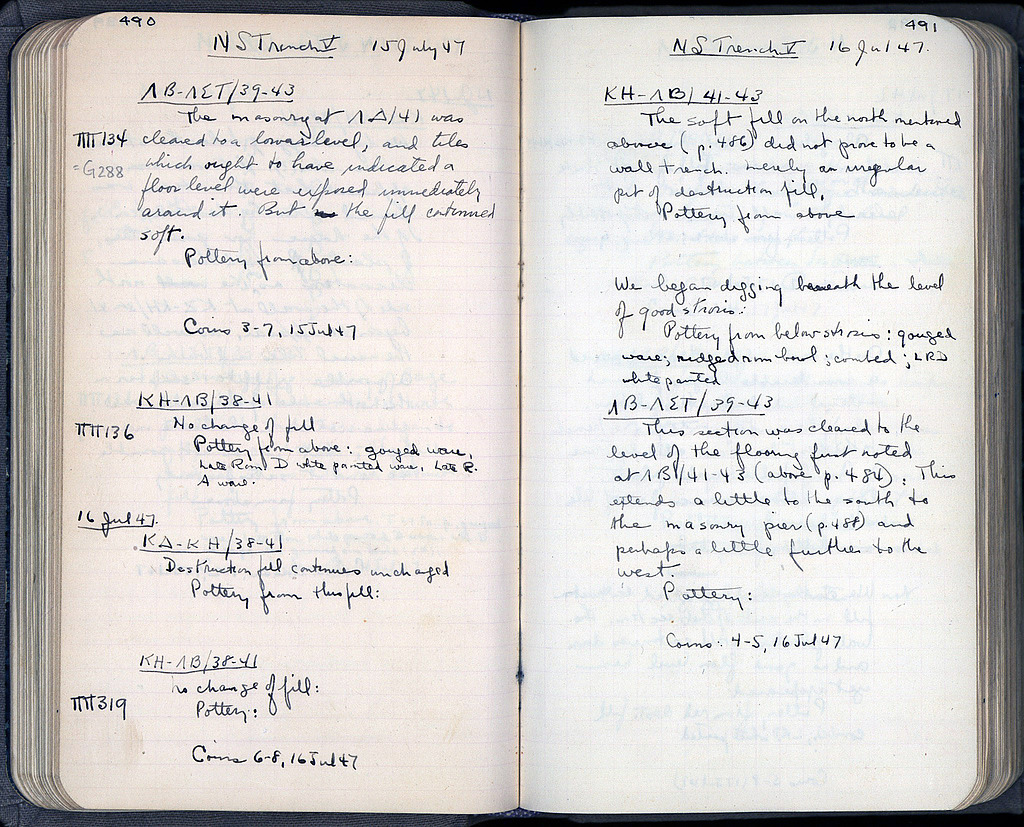 490
NS Trench V 15 July 47
ΛB-ΛΣT/39-43
The masonry at ΛΔ/41 was
ΠΠ134 cleared to a lower level, and tiles
=G288 which ought to have indicated a
floor level were exposed immediately
around it. But the fill continued
soft.
Pottery from above:
Coins 3-7, 15 Jul 47
KH-ΛB/38-41
No change of fill
ΠΠ136 Pottery from above: gouged ware,
Late Rom D white painted ware, Late R.
A ware.
16 Jul 47.
KΔ-KH/38-41
Destruction fill continues unchanged
Pottery from this fill:
KH-ΛB/38-41
No change of fill:
ΠΠ319 Pottery:
Coins 6-8, 16 Jul 47
491
NS Trench V 16 Jul 47.
KH-ΛB/41-43
The soft fill on the north mentioned
above (p. 486) did not prove to be a
wall trench. Merely an irregular
pit of destruction fill.
Pottery from above
We began digging beneath the level
of good strosis:
Pottery from below strosis: gouged
ware; ridged rim bowl; combed; LRD
white painted
ΛB-ΛΣT/39-43
This section was cleared to the
level of the flooring first noted
at ΛB/41-43 (above p. 484). This
extends a little to the south to
the masonry pier (p. 488) and
perhaps a little further to the
west.
Pottery:
Coins: 4-5, 16 Jul 47